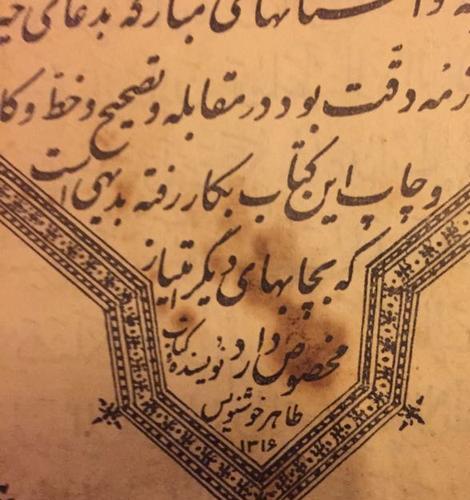 آستانهای مبارکه بدعای خیر
لازمه دقت بود در مقابله و تصحیح و خط و کا
و چاپ این کتاب بکار رفته بدیهی است
که بچاپهای دیگر امتیاز
مخصوص دارد نویسندهٔ کتاب
طاهر خوشنویس
۱۳۱۶